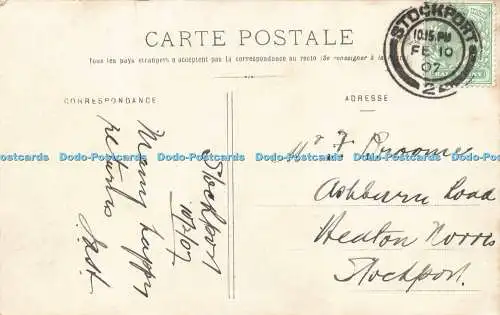 CARTE POSTALE
Tous les pays étrangers n'acceptent pas la correspondance au recto (Se renseigner à la
CORRESPONDANCE
ADRESSE
STOCKPORT
10.15 PM
FE 10
07
22
Stockport
10/2/07
Many happy
returns
Mr F. Broome
Ashburn Road
Heaton Norris
Stockport.
Dodo-Postcards Dodo-Postcards Dodo-Postcards Dodo-Postcards Dodo-Postcards